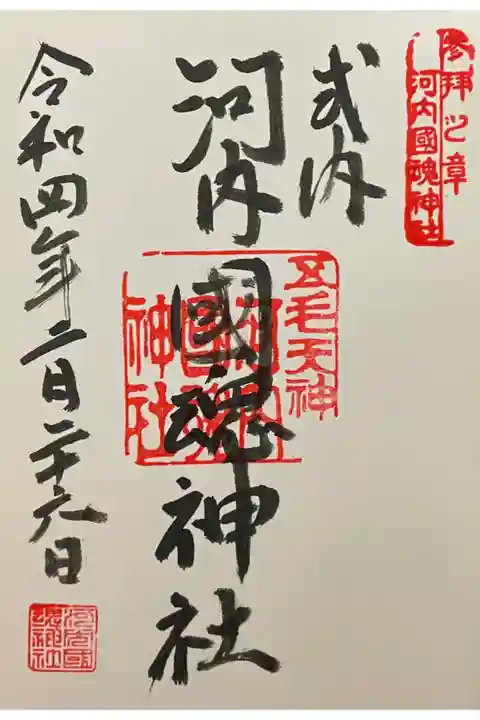 参拝之章
河内國魂神社
式内
河内國魂神社
五毛天神
河内
國魂
神社
令和四年二月二十六日
河内國
魂神社